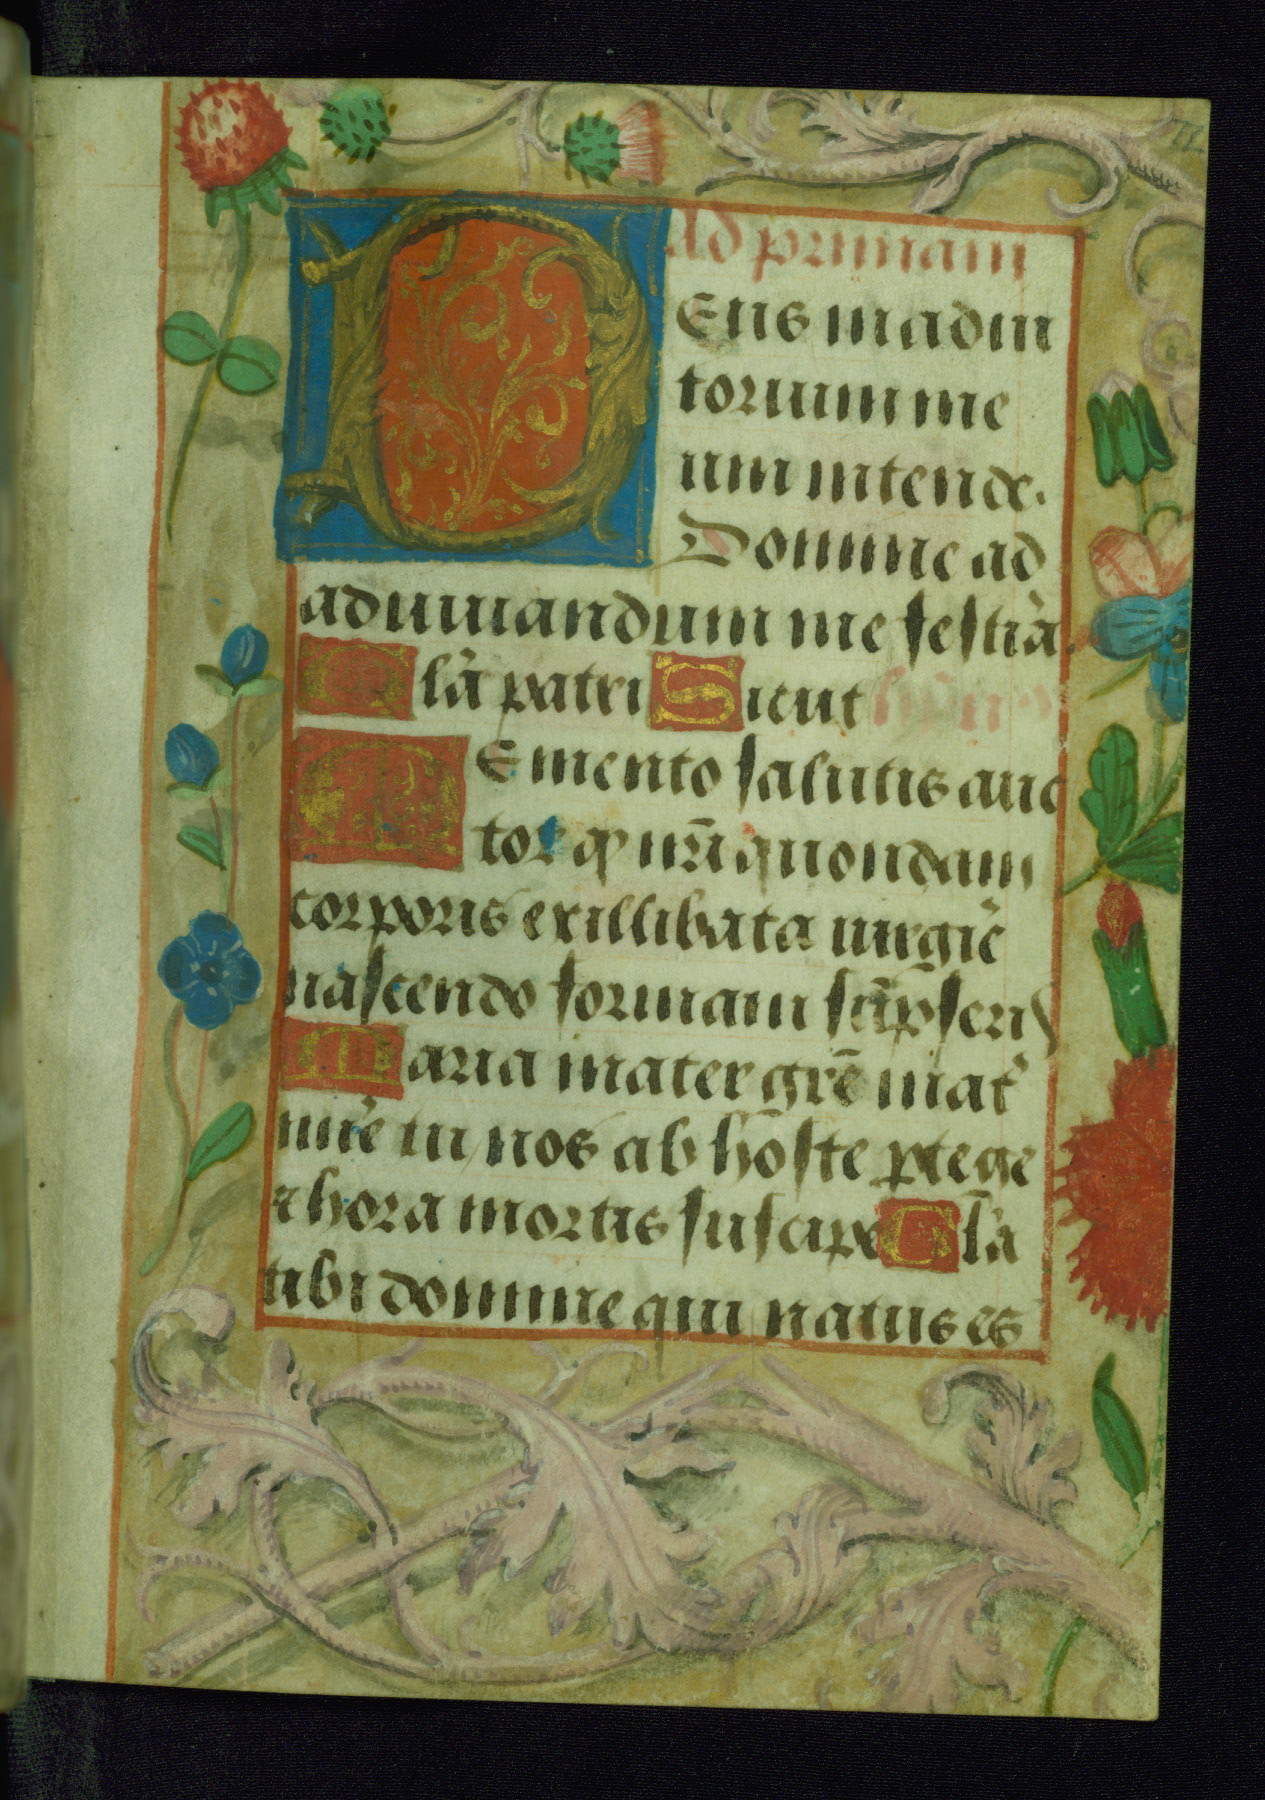 ad primam
DEus in adiu
torium me
um intende.
Domine ad
adiuuandum me festīa.
Glā patri Sicut hymnꝰ
MEmento salutis auc
tor qꝫ nr̄i quondam
corporis ex illibata uirgīe
nascendo formam sūpseris
Maria mater grē mat᷑
mīe tu nos ab hoste ꝓtege
& hora mortis suscipe Glā
tibi domine qui natus es